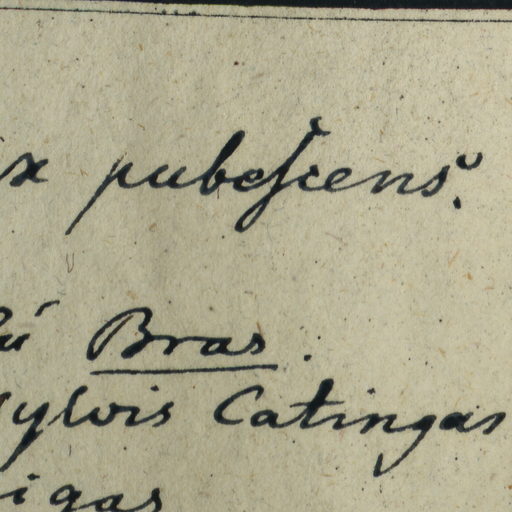 x pubescens.
Bras.
sylvis Catingas
igas